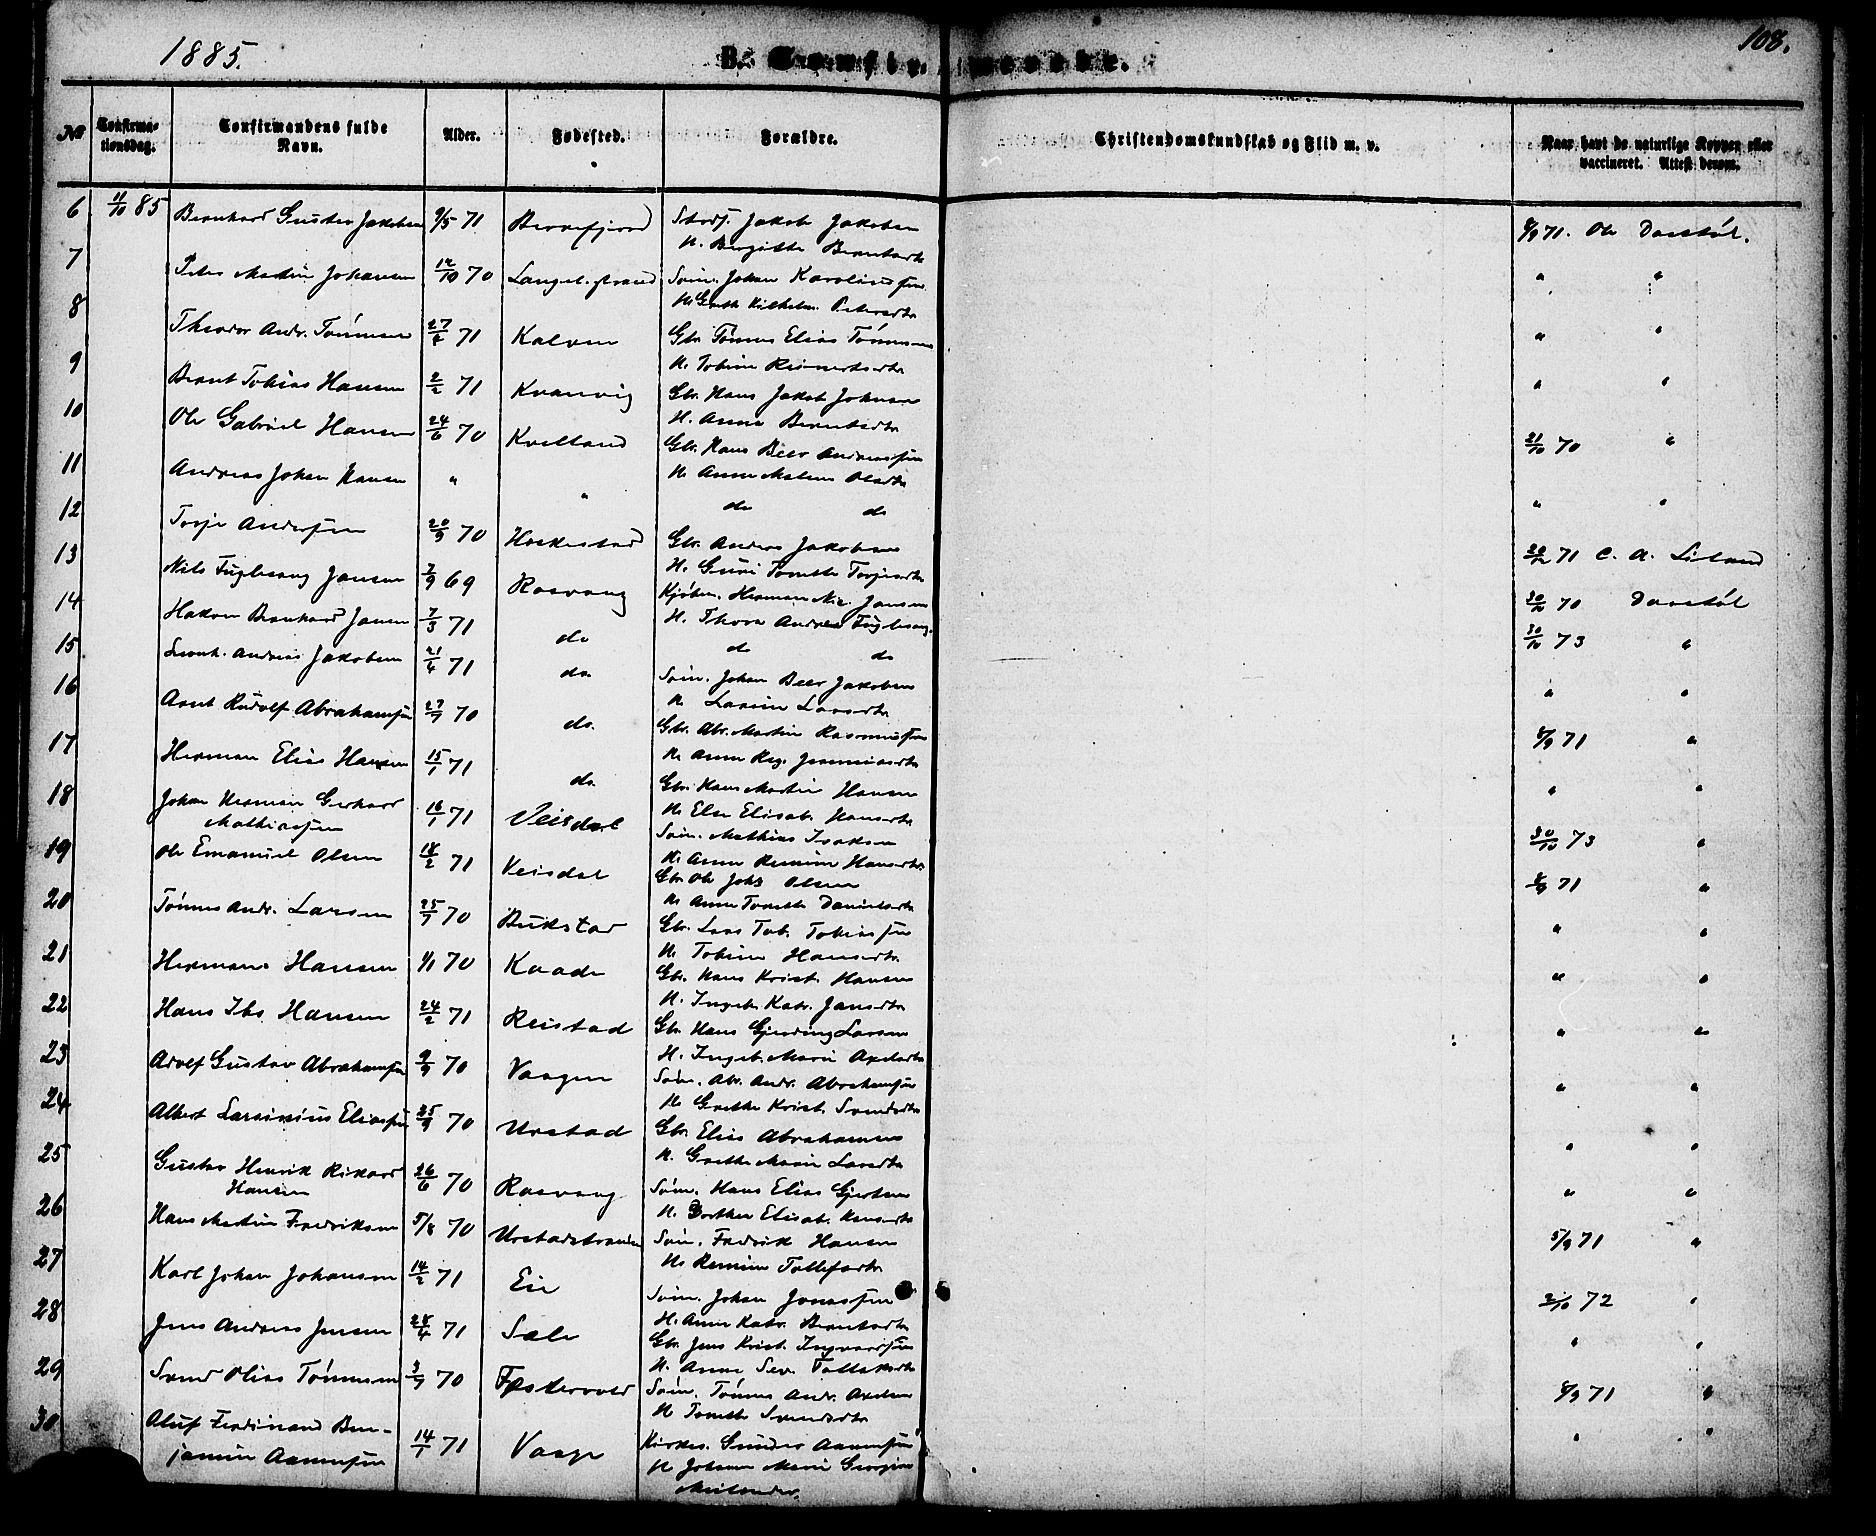 1885.
108.
B. Confirmerede.
No
Confirma-
tionsdag.
Confirmandens fulde
Navn.
Alder.
Fødested.
Forældre.
Christendomskundskab og Flid m. v.
Naar havt de naturlige Kopper eller
vaccineret. Attest derom.
6 11/10 85 Bernhard Gustav Jakobsen 9/5 71 Jakob Jakobsen 6/9 71. Ole
H. Birgitte Berntsdtr
7 Peter Martin Johansen 12/10 70 Langel. strand Søm. Johan Karoliussen " "
H. Greth Vilhelm. Petersdtr
8 Theodor Andr. Tønnesen 27/4 71 Kalven Gbr. Tønnes Elias Tønnesen " "
H. Tobine Reinertsdtr
9 Bernt Tobias Hansen 2/2 71 Kvanvig Gbr. Hans Jakob Johnsen " "
H. Anna Berntsdtr
10 Ole Gabriel Hansen 24/6 70 Kvelland Gbr. Hans Beer Andreassen 21/10 70 "
H. Anne Malene Olsdtr
11 Andreas Johan Hansen " " do do " "
12 Torje Andersen 20/9 70 Haakestad Gbr. Anders Jakobsen 71 C. A.
H. Guri Tonette Torjesdtr
13 Nils Fuglesang Jansen 7/9 69 Rasvaag Kjøbm. Herman Nic. Jansen 30/10 70
H. Thora Andrea Fuglesang
14 Hakon Bernhard Jansen 7/3 71 do do do 30/10 73 "
15 Leonh. Andreas Jakobsen 21/4 71 do. Søm. Johan Beer Jakobsen " "
H. Larsdtr
16 Arnt Rudolf Abrahamsen 27/7 70 do. Gbr. Abr. Martin Rasmussen 6/9 71 "
H. Anne Reg.
17 Herman Elias Hansen 15/1 71 do. Gbr. Hans Martin Hansen " "
H. Else Elisab. Hansdtr
18 Johan Herman Gerhard
Mathiassen 16/1 71 Veisdal Søm. Mathias Isaksen 30/10 73 "
H. Anne Hansdtr.
19 Ole Emanuel Olsen 18/2 71 Veisdal Gbr. Ole Johs Olsen 6/9 71 "
H. Anne Tonette Danielsdtr
20 Tønnes Andr. Larsen 25/7 70 Bukstad Gbr. Lars Tob. Tobiassen " "
H. Tobine Hansdtr.
21 Herman Hansen 1/1 70 Kaade Gbr. Hans Krist. Hansen " "
H. Ingeb. Katr. Jansdtr
22 Hans Ibs Hansen 24/2 71 Reistad Gbr. Hans Gjerding Larsen " "
H. Ingeb. Marie Axelsdtr
23 Adolf Gustav Abrahamsen 9/9 70 Vaagen Søm. Abr. Andr. Abrahamsen " "
H. Grethe Krist. Svendsdtr
24 Albert Lassinius Eliassen 25/9 70 Urstad Gbr. Elias Abrahamsen " "
H. Grethe Marie Larsdtr
25 Gustav Henrik Rikard
Hansen 26/6 70 Rasvaag Søm. Hans Elias Gjertsen " "
H. Dorthea Elisab. Hansdtr
26 Hans Martin Fredriksen 5/8 70 Urstadstranden Søm. Fredrik Hansen 5/9 71 "
H. Tollefsdtr
27 Karl Johan Johansen 14/2 71 Eie Søm. Johan Jonassen 2/10 72 "
H. Anne Katr. Berntsdtr
28 Jens Andreas Jensen 28/4 71 Sæle Gbr. Jens Krist. Ingvardsen " "
H. Anne Sev. Tollaksdtr
29 Svend Olias Tønnesen 3/7 70 Fæstervold Søm. Tønnes Andr. Axelsen 6/9 71 "
H. Tonette Svendsdtr
30 Aluf Ferdinand Ben-
jamin Aanensen 14/1 71 Vaage Kirkes. Gunder Aanensen " "
H. Johanne Marie Georgine